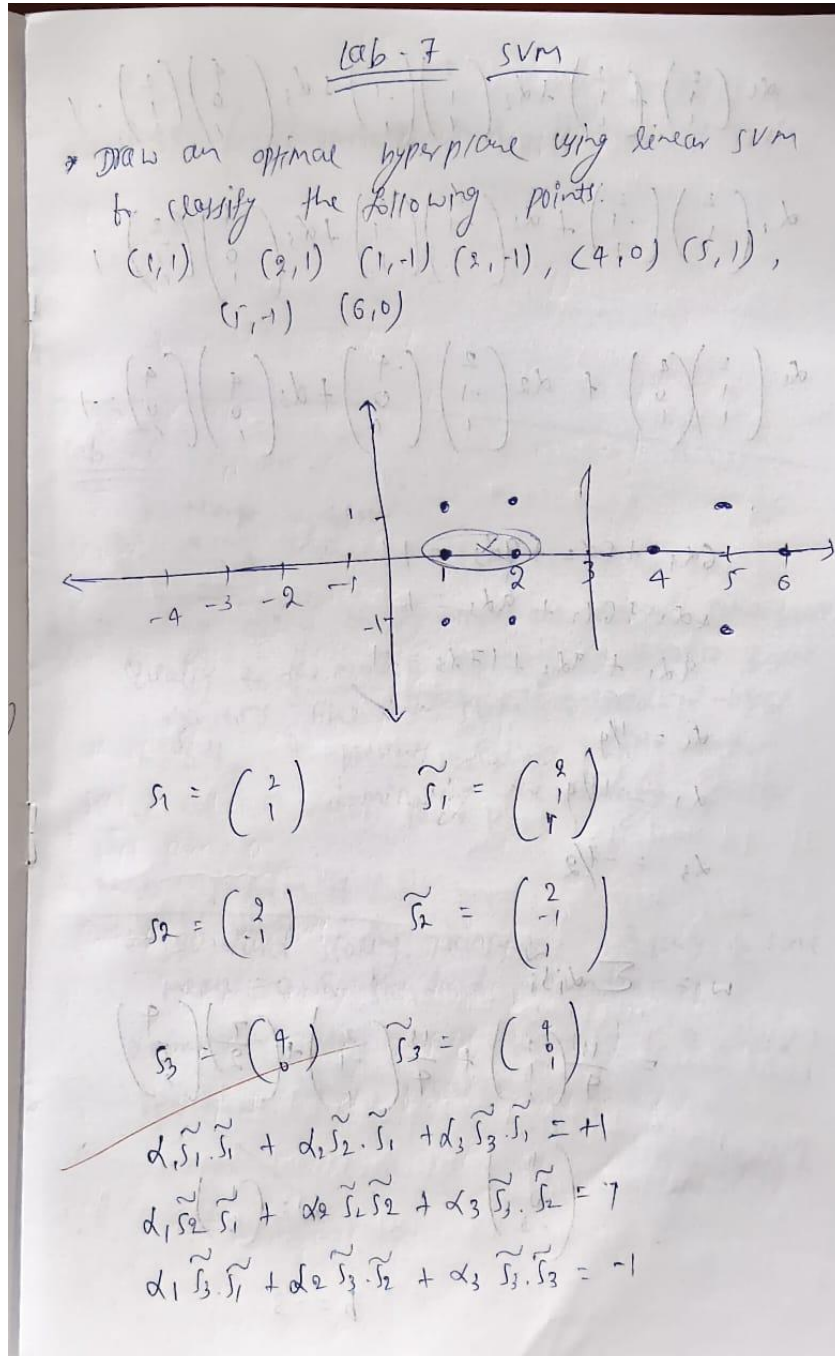 Lab - 7 SVM
* Draw an optimal hyperplane using linear SVM
to classify the following points.
(1,1) (2,1) (1,-1) (2,-1), (4,0) (5,1),
(5,-1) (6,0)
1
-4 -3 -2 -1 1 2 3 4 5 6
-1
S1 = (2 1) S̃1 = (2 1 1)
S2 = (2 -1) S̃2 = (2 -1 1)
S3 = (4 0) S̃3 = (4 0 1)
α1 S̃1.S̃1 + α2 S̃2.S̃1 + α3 S̃3.S̃1 = +1
α1 S̃2 S̃1 + α2 S̃2 S̃2 + α3 S̃3.S̃2 =
α1 S̃3.S̃1 + α2 S̃3.S̃2 + α3 S̃3.S̃3 = -1